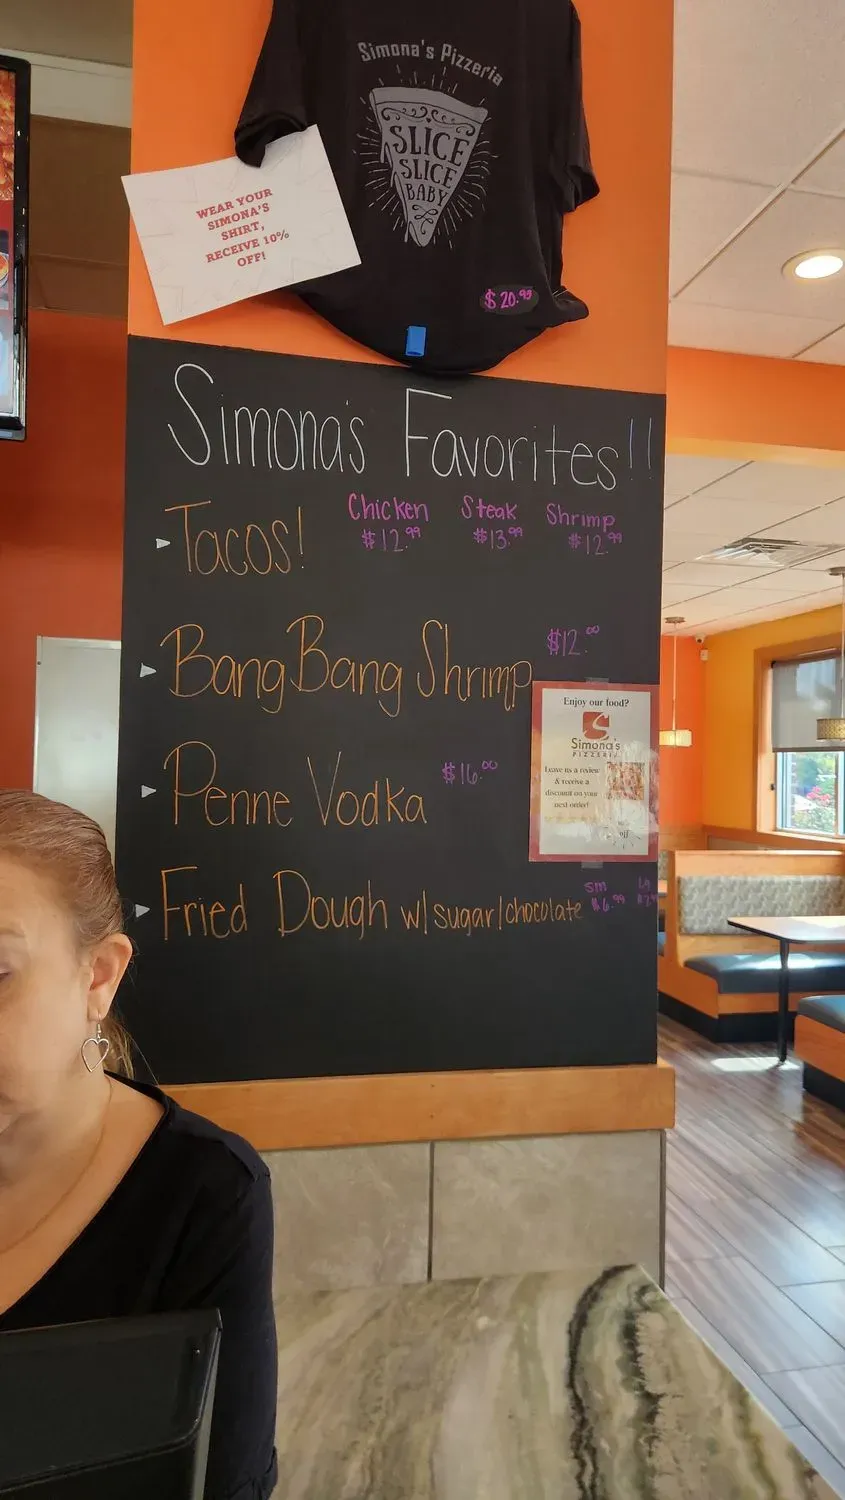 Simona's Pizzeria
SLICE
SLICE
BABY
WEAR YOUR
SIMONA'S
SHIRT,
RECEIVE 10%
OFF!
$20.99
Simona's Favorites!!
Tacos! Chicken Steak Shrimp
$12.99 $13.99 $12.99
Bang Bang Shrimp $12.00
Enjoy our food?
S
Simona's
PIZZERIA
Leave us a review
& receive a
discount on your
next order!
Penne Vodka $16.00
Fried Dough w/sugar/chocolate sm
$6.99